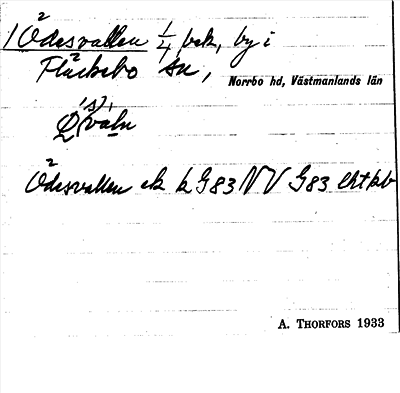 1 Ödesvallen 1/4 bek, by i
Fläckebo Sn,
Norrbo hd, Västmanlands län
Ödesvallen ek k G 83 NV G 83
A. THORFORS 1933